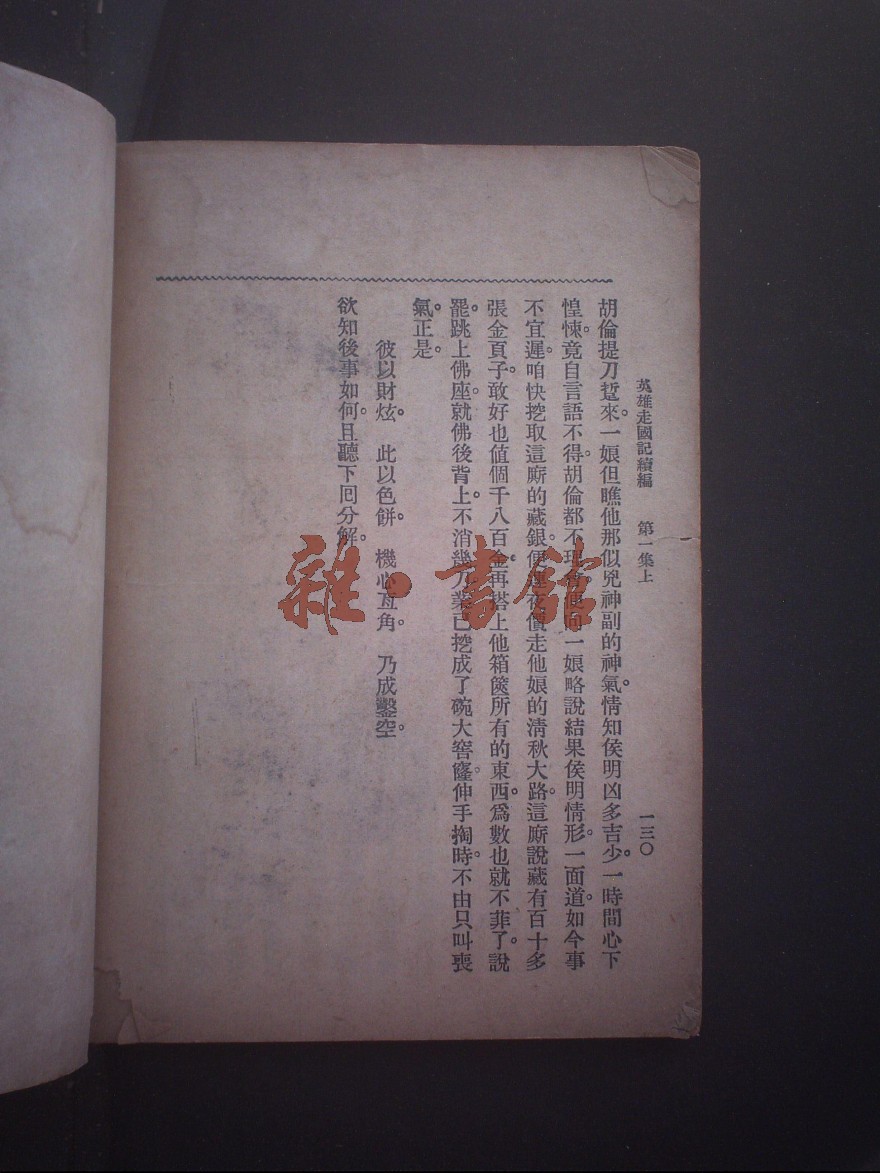 英雄走國記續編　第一集上　一三〇
胡倫提刀踅來。一娘但瞧他那似兇神副的神氣。情知侯明凶多吉少。一時間心下
惶悚。竟自言語不得。胡倫都不理會便向一娘略說結果侯明情形。一面道。如今事
不宜遲。咱快挖取這廝的藏銀。便連夜價走他娘的清秋大路。這廝說藏有百十多
張金頁子。敢好也值個千八百金。再搭上他箱篋所有的東西。爲數也就不菲了。說
罷。跳上佛座。就佛後背上。不消幾刀業已挖成了碗大窖窿。伸手掏時。不由只叫喪
氣。正是。
彼以財炫。　此以色餅。　機心互角。　乃成鑿空。
欲知後事如何。且聽下囘分解。
雜·書館